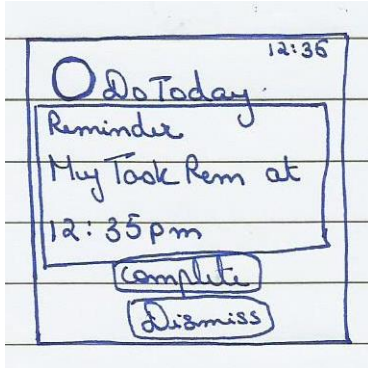 12:36
Do Today.
Reminder
My Task Rem at
12:35pm
Complete
Dismiss